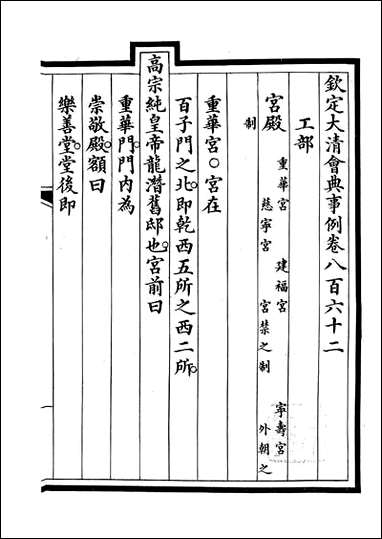 欽定大清會典事例卷八百六十二
工部
宮殿 重華宮 建福宮 寧壽宮
慈寧宮 宮禁之制 外朝之
制
重華宮○宮在
百子門之北即乾西五所之西二所
高宗純皇帝龍潛舊邸也宮前曰
重華門門內為
崇敬殿額曰
樂善堂堂後即